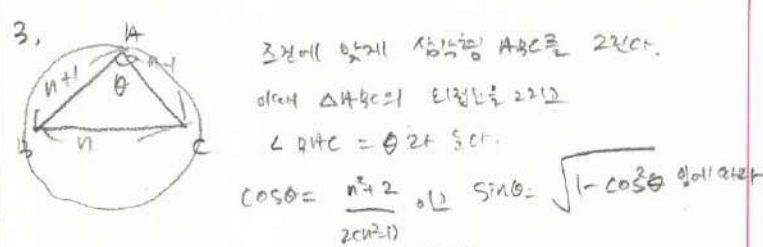 3,
A
n+1
n-1
θ
B
n
C
조건에 맞게 삼각형 ABC를 그린다.
이때 △ABC의 외접원을 그리고
∠BAC = θ라 둔다.
cosθ = \frac{n²+2}{2(n²-1)} 이고 sinθ = \sqrt{1-cos²θ} 임에 따라